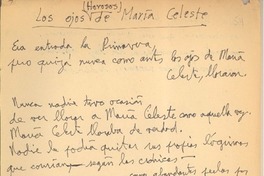 (Llorosos)
Los ojos de María Celeste
Era entrada la Primavera,
pero quizá nunca como antes los ojos de María
Celeste, lloraron.
Nunca nadie tuvo ocasión
de ver llorar a María Celeste como aquella vez.
María Celeste lloraba de verdad.
Nadie le podía quitar sus propias lágrimas
que corrían — según las crónicas —
como abundantes